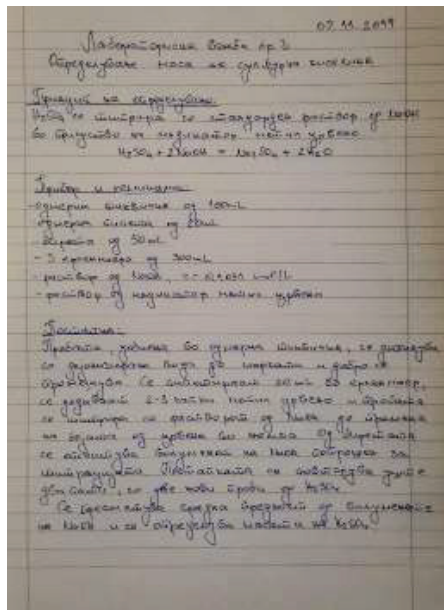 07.11.2019
Лабораториска вежба бр.2
Определување маса на сулфурна киселина
Принцип на определување
H₂SO₄ се титрира со стандарден раствор од NaOH
во присуство на индикатор метил црвено
H₂SO₄ + 2NaOH = Na₂SO₄ + 2H₂O
Прибор и реагенси
-одмерна тиквичка од 100mL
-одмерна пипета од 20mL
-бирета од 50mL
- 3 ерленмаери од 300mL
- раствор од NaOH, c =
- раствор од индикатор метил црвено
Постапка:
Пробата, добиена во одмерна тиквичка, се дополнува
со дестилирана вода до марката и добро се
промешува. Се пипетираат 20 mL во ерленмаер,
се додаваат 2-3 капки метил црвено и пробата
се титрира со растворот од NaOH до промена
на бојата од црвена во жолта. Од биретата
се отчитува волуменот на NaOH потрошен за
титрацијата. Постапката се повторува уште
два пати, со две нови проби од H₂SO₄.
Се пресметува средна вредност од волумените
на NaOH и се определува масата на H₂SO₄.